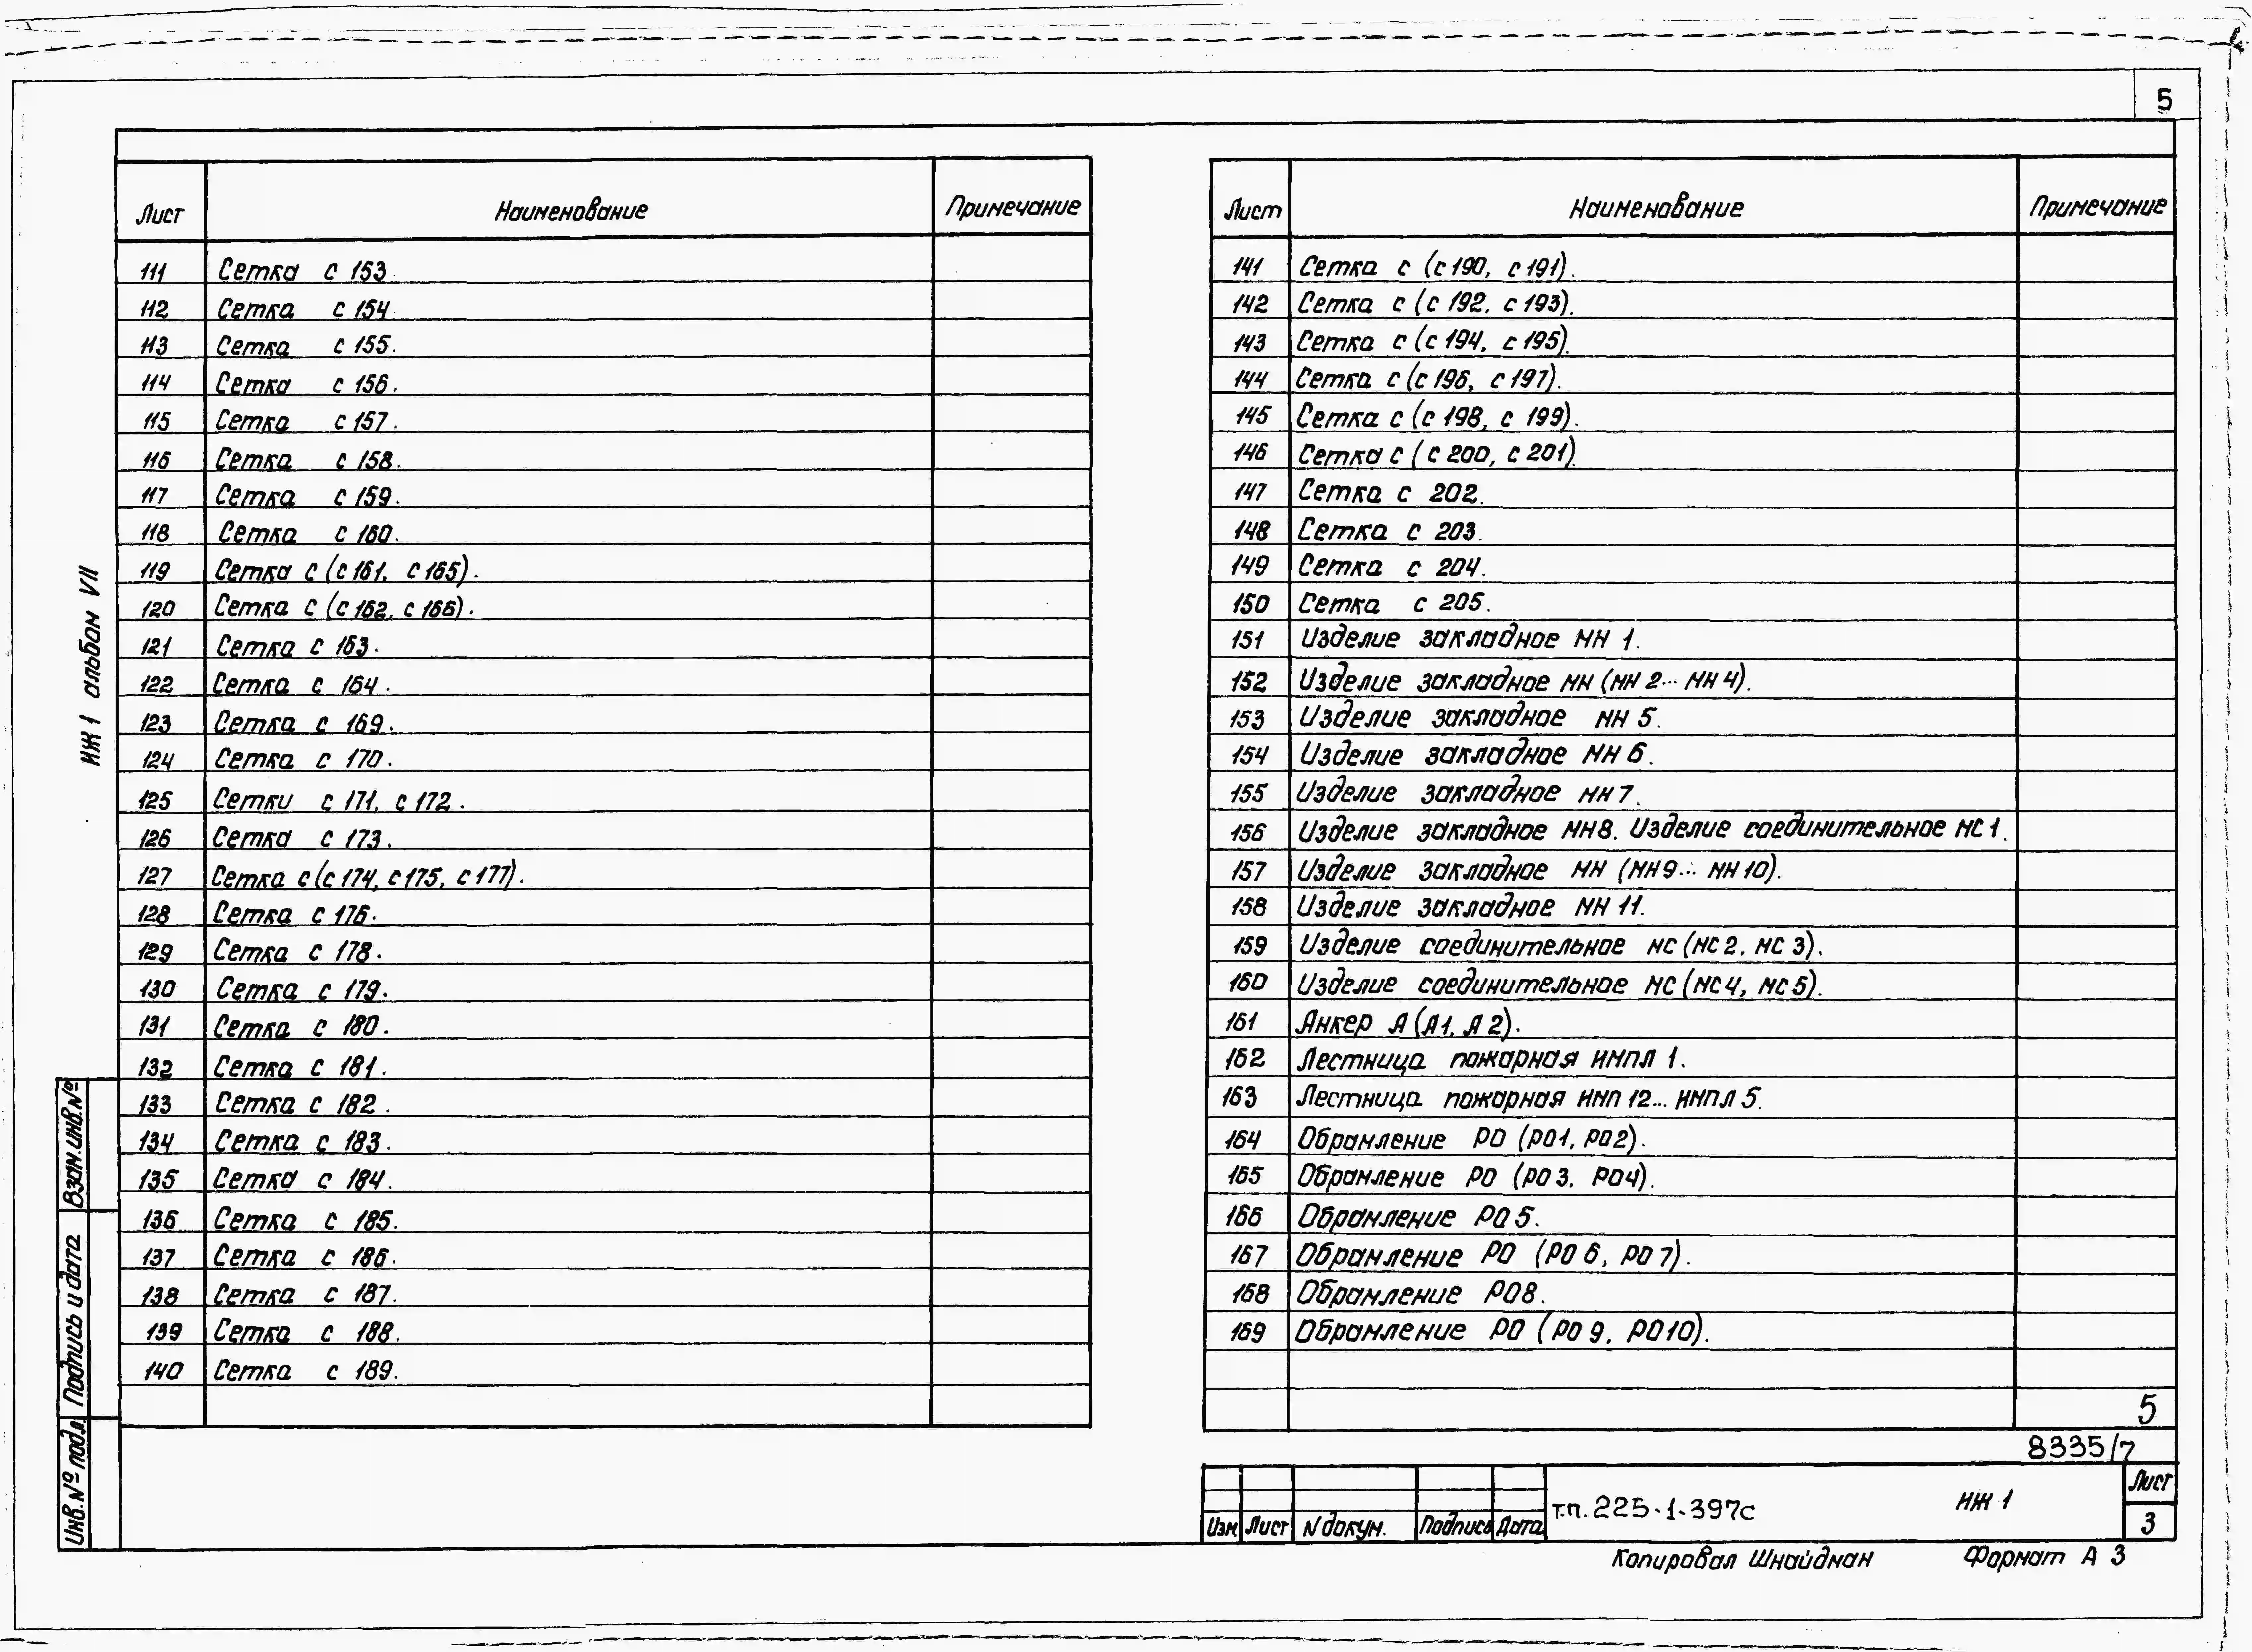 5
Лист Наименование Примечание
111 Сетка с 153
112 Сетка с 154
113 Сетка с 155.
114 Сетка с 156.
115 Сетка с 157.
116 Сетка с 158.
117 Сетка с 159.
118 Сетка с 160.
119 Сетка с (с 161, с 165).
120 Сетка с (с 162, с 166).
121 Сетка с 163.
122 Сетка с 164.
123 Сетка с 169.
124 Сетка с 170.
125 Сетки с 171, с 172.
126 Сетка с 173.
127 Сетка с (с 174, с 175, с 177).
128 Сетка с 176.
129 Сетка с 178.
130 Сетка с 179.
131 Сетка с 180.
132 Сетка с 181.
133 Сетка с 182.
134 Сетка с 183.
135 Сетка с 184.
136 Сетка с 185.
137 Сетка с 186.
138 Сетка с 187.
139 Сетка с 188.
140 Сетка с 189.
Лист Наименование Примечание
141 Сетка с (с 190, с 191).
142 Сетка с (с 192, с 193).
143 Сетка с (с 194, с 195).
144 Сетка с (с 196, с 197).
145 Сетка с (с 198, с 199).
146 Сетка с (с 200, с 201)
147 Сетка с 202.
148 Сетка с 203.
149 Сетка с 204.
150 Сетка с 205.
151 Изделие закладное МН 1.
152 Изделие закладное МН (МН 2... МН 4).
153 Изделие закладное МН 5.
154 Изделие закладное МН 6.
155 Изделие закладное МН 7.
156 Изделие закладное МН 8. Изделие соединительное МС 1.
157 Изделие закладное МН (МН 9... МН 10).
158 Изделие закладное МН 11.
159 Изделие соединительное МС (МС 2, МС 3).
160 Изделие соединительное МС (МС 4, МС 5).
161 Анкер А (А1, А 2).
162 Лестница пожарная ИМПЛ 1.
163 Лестница пожарная ИМП 12... ИМПЛ 5.
164 Обрамление РО (РО1, РО2).
165 Обрамление РО (РО 3, РО4).
166 Обрамление РО 5.
167 Обрамление РО (РО 6, РО 7).
168 Обрамление РО8.
169 Обрамление РО (РО 9, РО10).
5
8335/7
Изм Лист N докум. Подпись Дата
т.п. 225-1-397с ИЖ 1
Лист
3
Копировал Шнайдман Формат А 3
ИЖ 1 альбом VII
Взам. инв №
Подпись и дата
Инв. № подл.